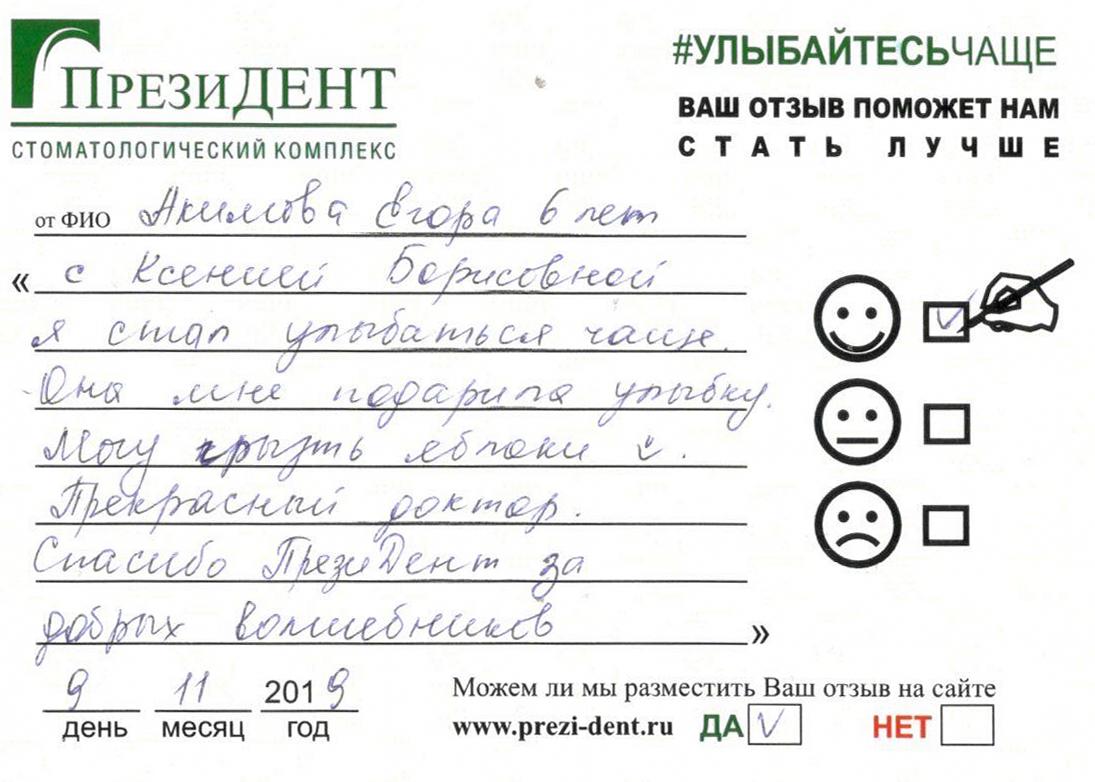 ПрезиДЕНТ
СТОМАТОЛОГИЧЕСКИЙ КОМПЛЕКС
#УЛЫБАЙТЕСЬЧАЩЕ
ВАШ ОТЗЫВ ПОМОЖЕТ НАМ
СТАТЬ ЛУЧШЕ
от ФИО Акимова Егора 6 лет
« с Ксенией Борисовной
я стал улыбаться чаще.
Она мне подарила улыбку.
Могу грызть яблоки.
Прекрасный доктор.
Спасибо ПрезиДент за
добрых волшебников »
9 11 2019
день месяц год
Можем ли мы разместить Ваш отзыв на сайте
www.prezi-dent.ru ДА НЕТ